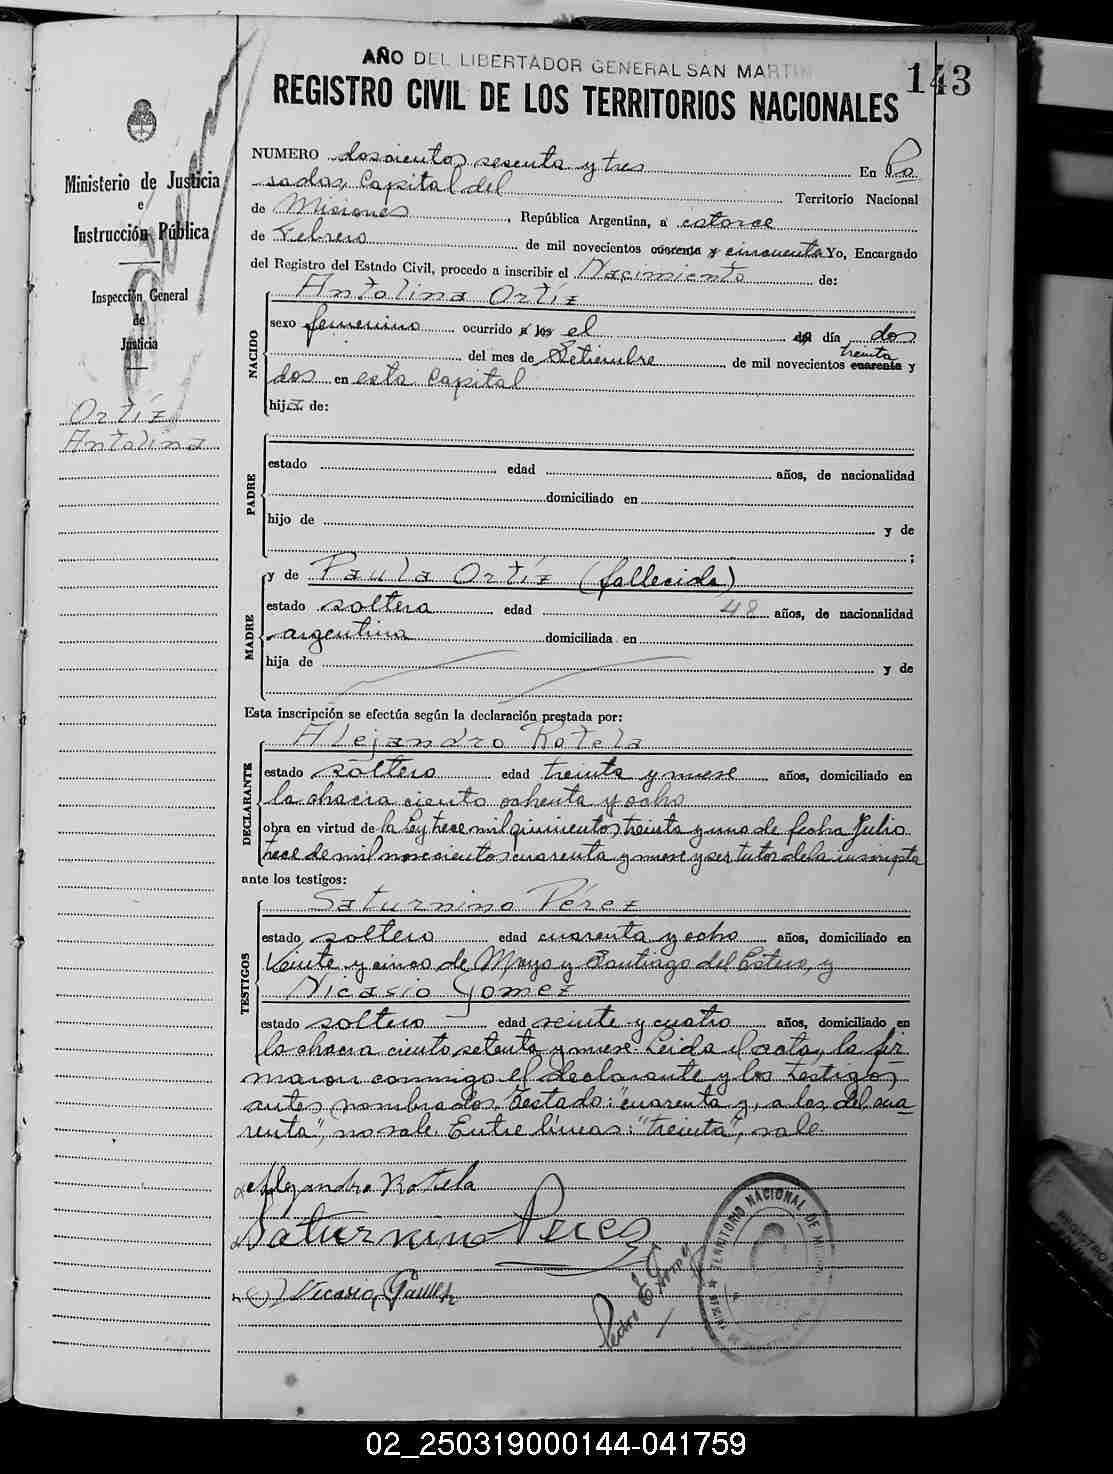 AÑO DEL LIBERTADOR GENERAL SAN MARTIN
143
REGISTRO CIVIL DE LOS TERRITORIOS NACIONALES
Ministerio de Justicia
e
Instrucción Pública
Inspección General
de
Justicia
Ortíz
Antolina
NUMERO doscientos sesenta y tres En Po
sadas, Capital del Territorio Nacional
de Misiones, República Argentina, a catorce
de Febrero de mil novecientos cuarenta y cincuenta Yo, Encargado
del Registro del Estado Civil, procedo a inscribir el Nacimiento de:
NACIDO
Antolina Ortíz
sexo femenino ocurrido a los el del día dos
del mes de Setiembre de mil novecientos cuarenta y treinta
dos en esta Capital
hija de:
PADRE
estado edad años, de nacionalidad
domiciliado en
hijo de y de
;
MADRE
y de Paula Ortíz (fallecida)
estado soltera edad 48 años, de nacionalidad
argentina domiciliada en
hija de y de
Esta inscripción se efectúa según la declaración prestada por:
DECLARANTE
Alejandro Rotela
estado soltero edad treinta y nueve años, domiciliado en
la chacra ciento ochenta y ocho
obra en virtud de la Ley trece mil quinientos treinta y uno de fecha Julio
trece de mil novecientos cuarenta y nueve y ser tutor de la inscripta
ante los testigos:
TESTIGOS
Saturnino Pérez
estado soltero edad cuarenta y ocho años, domiciliado en
Veinte y cinco de Mayo y Santiago del Estero, y
Nicasio Gomez
estado soltero edad veinte y cuatro años, domiciliado en
la chacra ciento setenta y nueve. Leida el acta, la fir
maron conmigo el declarante y los testigos
antes nombrados. Testado: "cuarenta y, a los, del, cua
renta", no vale. Entre líneas: "treinta", vale.
Alejandro Rotela
Saturnino Perez
Nicasio
Pedro E.
TERRITORIO NACIONAL DE
02_250319000144-041759